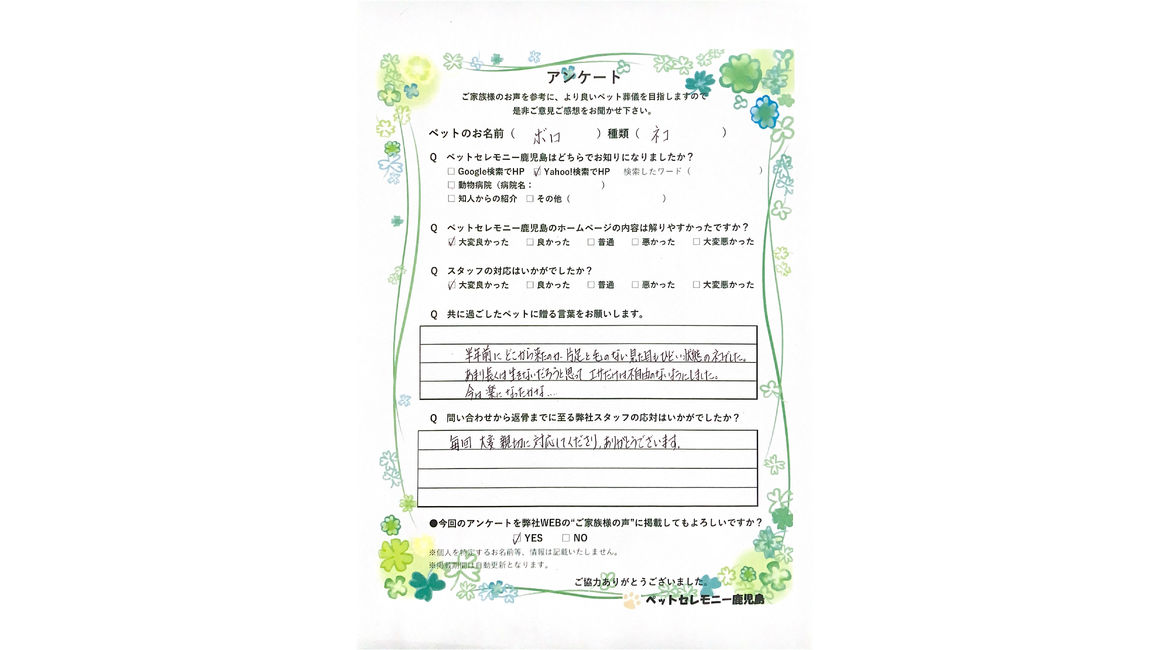 アンケート
ご家族様のお声を参考に、より良いペット葬儀を目指しますので
是非ご意見ご感想をお聞かせ下さい。
ペットのお名前（ ボロ ）種類（ ネコ ）
Q ペットセレモニー鹿児島はどちらでお知りになりましたか？
□ Google検索でHP ☑ Yahoo!検索でHP 検索したワード（ ）
□ 動物病院（病院名： ）
□ 知人からの紹介 □ その他（ ）
Q ペットセレモニー鹿児島のホームページの内容は解りやすかったですか？
☑ 大変良かった □ 良かった □ 普通 □ 悪かった □ 大変悪かった
Q スタッフの対応はいかがでしたか？
☑ 大変良かった □ 良かった □ 普通 □ 悪かった □ 大変悪かった
Q 共に過ごしたペットに贈る言葉をお願いします。
半年前に どこから来たのか 片足と毛のない見た目もひどい状態のネコでした。
あまり長くは生きないだろうと思って エサだけは不自由のないようにしました。
今は楽になったかな....
Q 問い合わせから返骨までに至る弊社スタッフの応対はいかがでしたか？
毎回 大変 親切に対応してくださり、ありがとうございます。
●今回のアンケートを弊社WEBの“ご家族様の声”に掲載してもよろしいですか？
☑ YES □ NO
※個人を特定するお名前等、情報は記載いたしません。
※掲載期間は自動更新となります。
ご協力ありがとうございました。
ペットセレモニー鹿児島